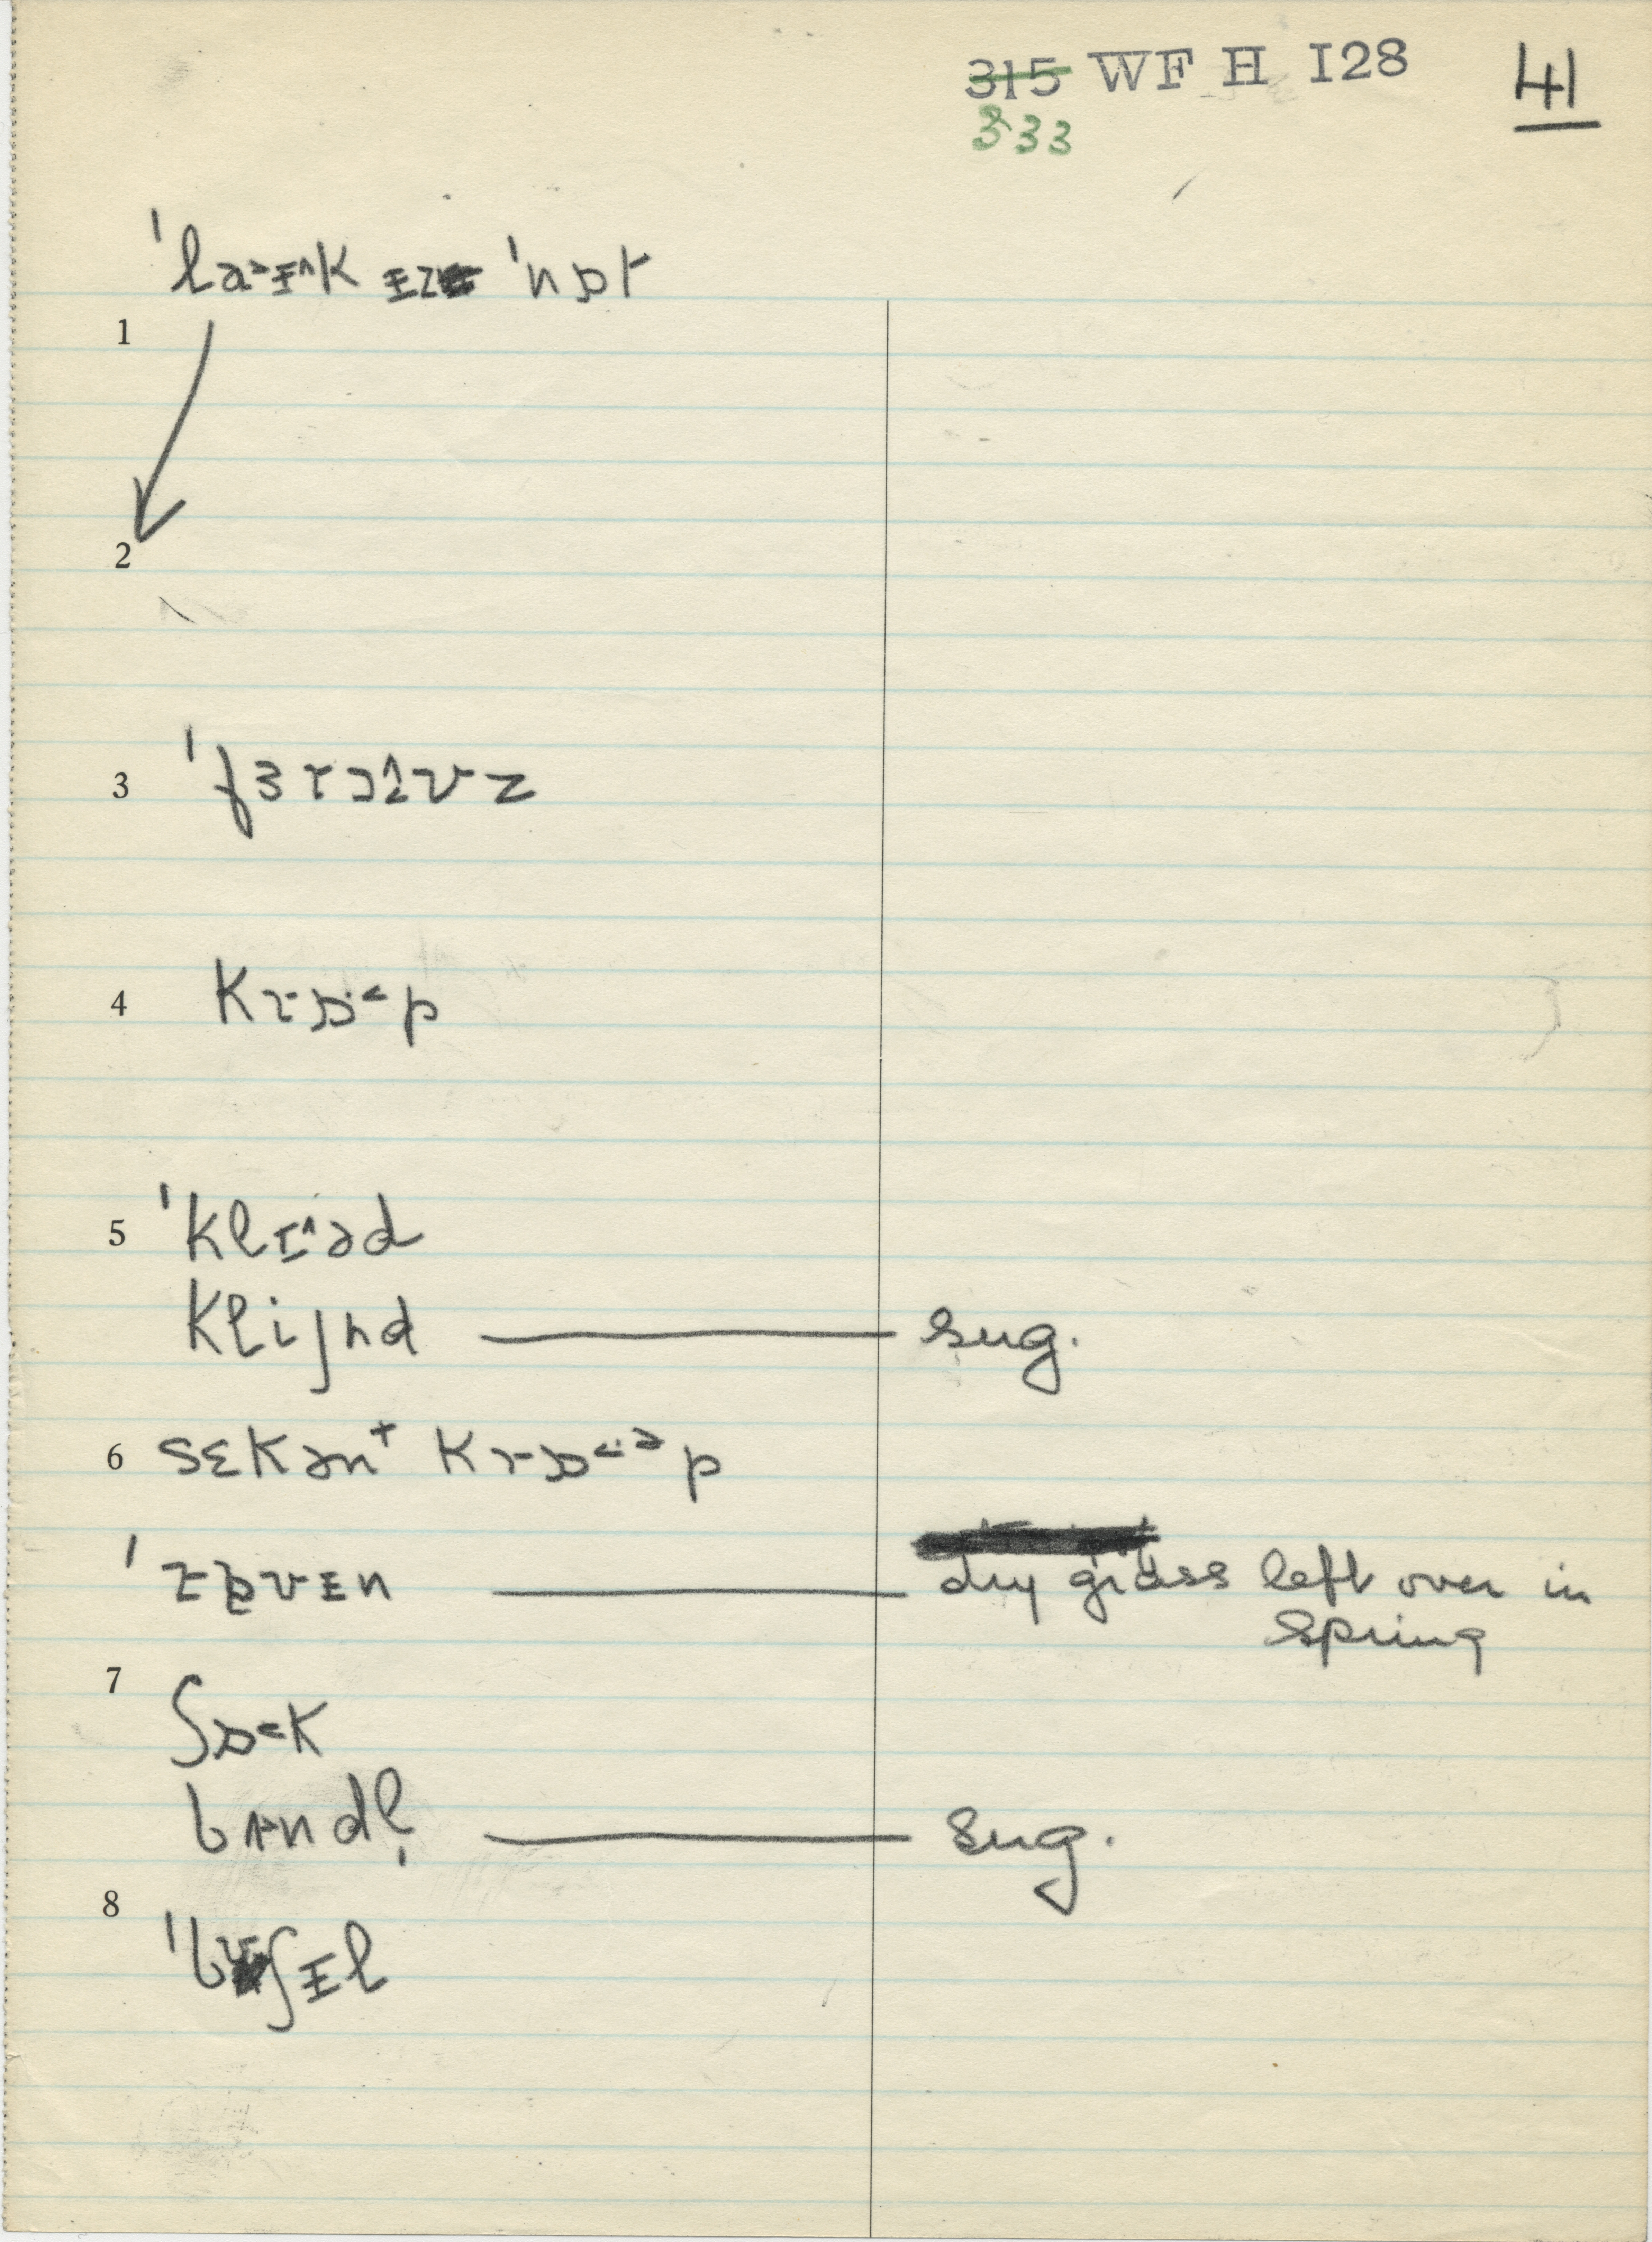 315 WF H I28 41
333
ˈlaᵊɪ^k ɪz ˈnɒt
1
2
3 ˈfɜrɔ^ʊz
4 krɒ·˂p
5 ˈklɪ^əd
klijnd ——— sug.
6 sɛkənᵗ krɒ˂·ᵊp
ˈrɒvɪn ——— dry grass left over in
spring
7
ʃɒ˂k
bʌndl̩ ——— sug.
8
ˈbʊʃɪl